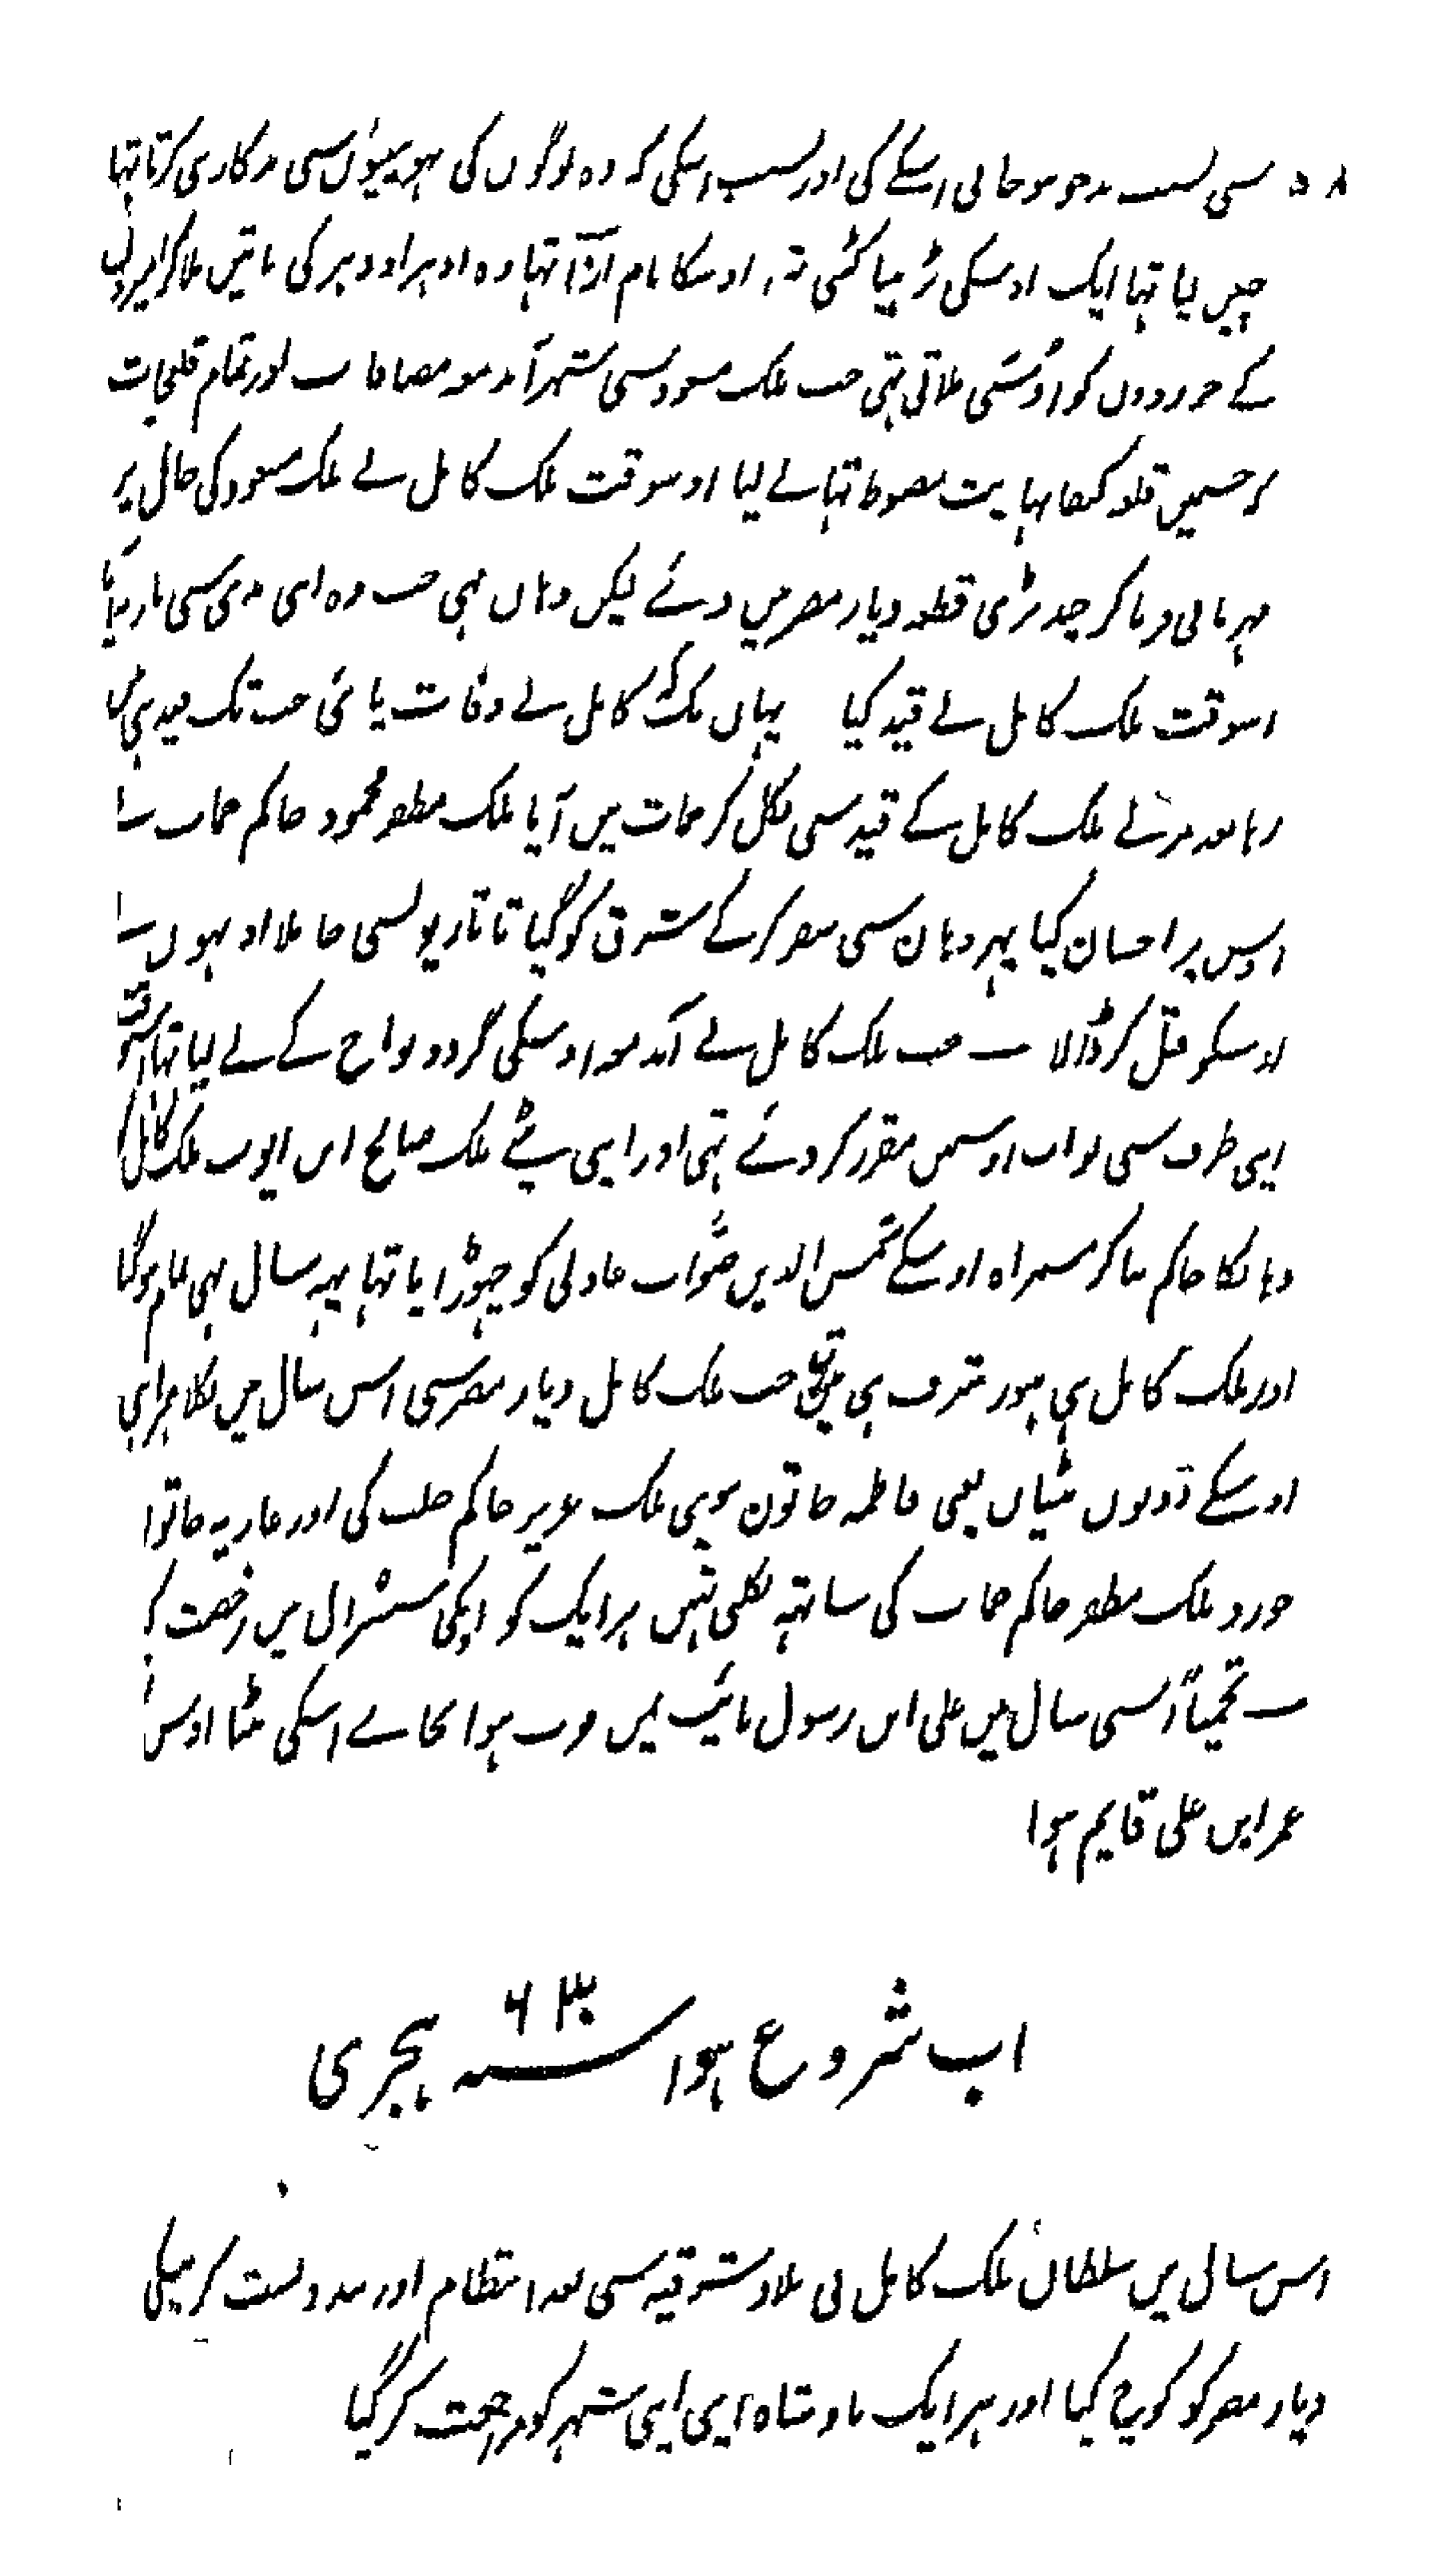 سی بسبب بدخو موجانی اسکے کی اور بسبب اسکی کہ وہ لوگوں کی بہو بیٹیوں سی بدکاری کرتا تہا
چہین لیا تہا ایک اوسکی بڑہیا کٹنی تہی اوسکا نام ازا تہا وہ ادہر اودہر کی باتین ملاکر امیروں
کے جوروؤں کو اوسّی ملاتی تہی جب ملک مسعود سی شہر آمد معہ مضافات اور تمام قلعجات
کہ جسمیں قلعہ کیفا نہایت مضبوط تہا لے لیا اوسوقت ملک کامل نے ملک مسعود کی حال پر
مہربانی فرما کر چند بڑی قطعہ دیار مصر میں دئے لیکن وہاں بہی جب وہ اپنی بدی سی باز نہ آیا
اسوقت ملک کامل نے قید کیا یہاں تک کہ کامل نے وفات پائی جب تک قید ہی
رہا بعد مرنے ملک کامل کے قید سی نکل کر حمات میں آیا ملک مظفر محمود حاکم حمات نے
اوس پر احسان کیا پہر وہان سی سفر کرکے شرق کو گیا تاتاریو نسی جا ملا اونہوں نے
اوسکو قتل کر ڈالا جب ملک کامل نے آمد معہ اوسکی گرد و نواح کے لے لیا تہا اوسوقت
اپنی طرف سی نواب اوسمیں مقرر کر دئے تہی اور اپنی بیٹے ملک صالح ابن ایوب ملک کامل
وہانکا حاکم بنا کر ہمراہ اوسکے شمس الدین صواب عادلی کو چہوڑ ایا تہا یہہ سال بہی تمام ہوگیا
اور ملک کامل بہی ہنوز شرف ہی میں تہا جب ملک کامل دیار مصر سی اس سال میں نکلا ہمراہ
اوسکے دونوں بیٹیاں یعنی فاطمہ خاتون بیوی ملک عزیز حاکم حلب کی اور غازیہ خاتون
جورو ملک مظفر حاکم حمات کی ساتہہ نکلی تہیں ہر ایک کو اپنکی سسرال میں رخصت کیا
تخمیناً اسی سال میں علی ابن رسول نائب یمن فوت ہوا بجائے اسکی بیٹا اوس
عمر ابن علی قایم ہوا
اب شروع ہوا سنہ ۶۳۰ ہجری
اس سال میں سلطان ملک کامل نی بلاد شرقیہ سی بعد انتظام اور بندوبست کر نیکی
دیار مصر کو کوچ کیا اور ہر ایک بادشاہ اپنی اپنی شہر کو مراجعت کر گیا